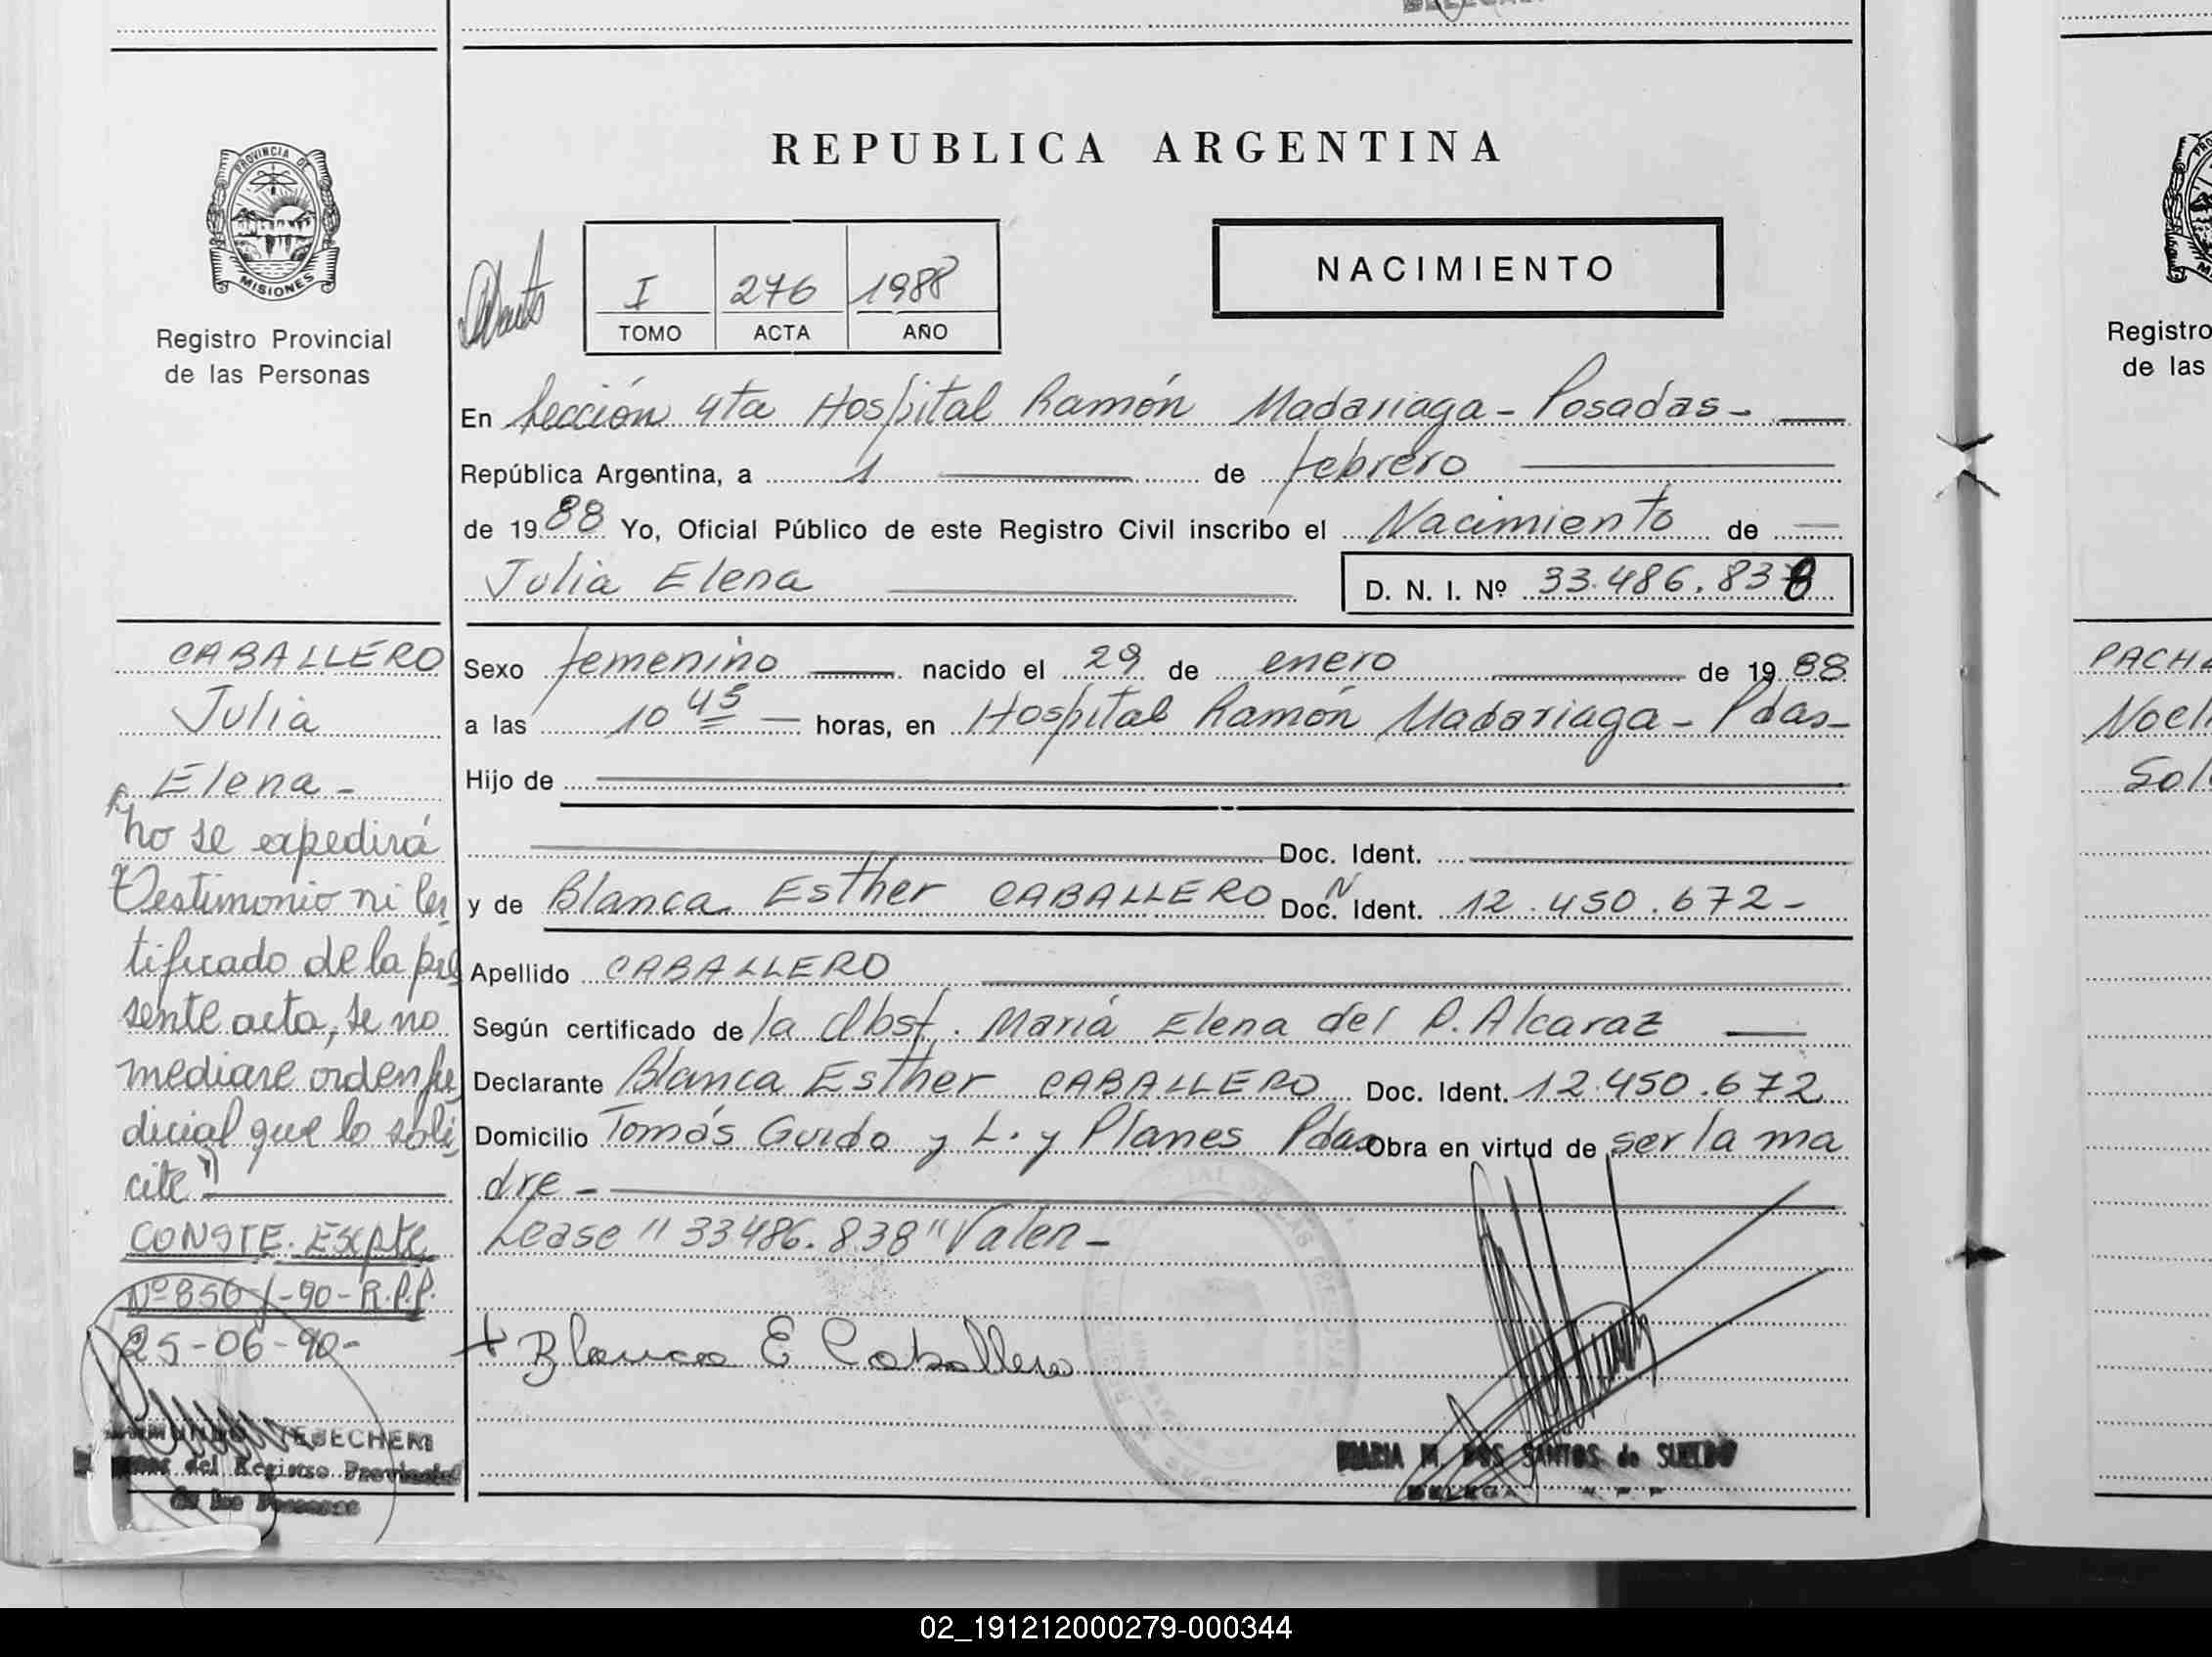 PROVINCIA DE
MISIONES
Registro Provincial
de las Personas
REPUBLICA ARGENTINA
I 276 1988
TOMO ACTA AÑO
NACIMIENTO
En Sección 4ta Hospital Ramón Madariaga - Posadas -
República Argentina, a 1 de febrero
de 1988 Yo, Oficial Público de este Registro Civil inscribo el Nacimiento de
Julia Elena D. N. I. Nº 33.486.838
Sexo femenino nacido el 29 de enero de 1988
a las 10 45 horas, en Hospital Ramón Madariaga - Pdas -
Hijo de
Doc. Ident.
y de Blanca Esther CABALLERO Doc. N Ident. 12.450.672 -
Apellido CABALLERO
Según certificado de la Obst. María Elena del P. Alcaraz
Declarante Blanca Esther CABALLERO Doc. Ident. 12.450.672
Domicilio Tomás Guido y L. y Planes Pdas Obra en virtud de ser la ma
dre -
Lease "33486.838" Valen -
+ Blanca E Caballero
MARIA M. DOS SANTOS de SUELDO
CABALLERO
Julia
Elena -
"no se expedirá
Testimonio ni Cer
tificado de la pre
sente acta, se no
mediare orden ju
dicial que lo soli
cite"
CONSTE. Expte.
Nº 850/-90-R.P.P.
25-06-90-
TEBECHERI
del Registro Provincial
de las Personas
Registro
de las
PACH
Noel
Sol
02_191212000279-000344